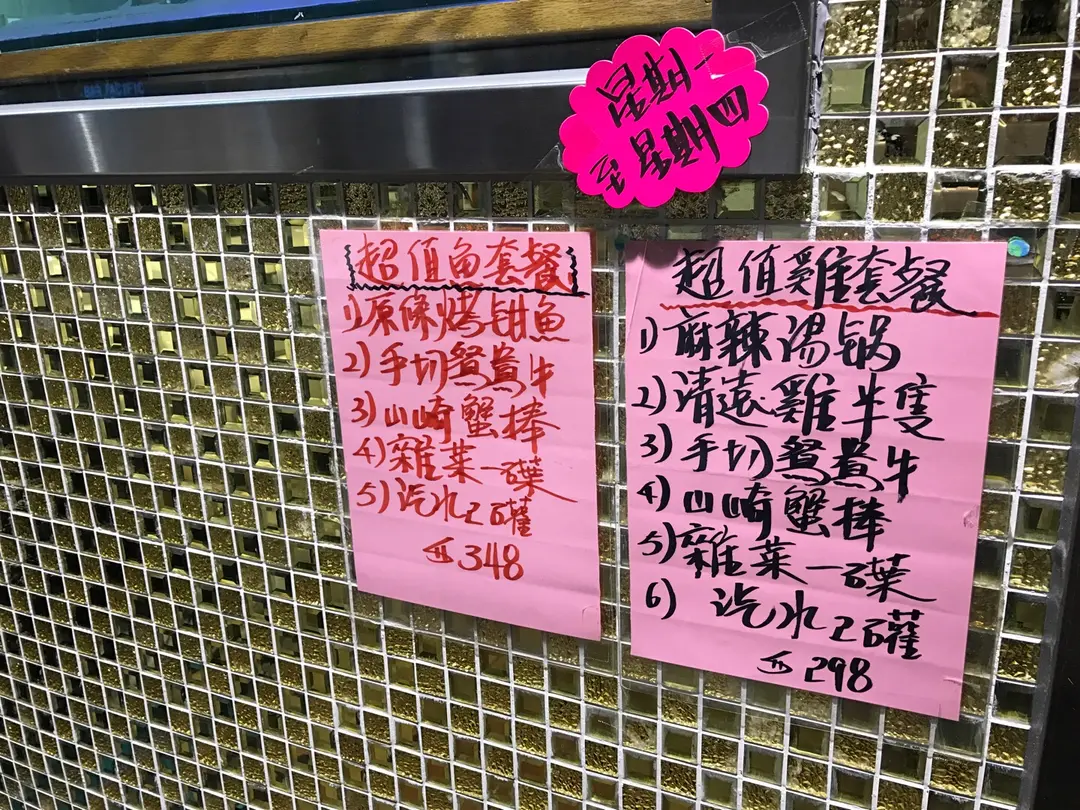 BAR PACIFIC
星期一
至星期四
超值鱼套餐
1)原條烤钳魚
2)手切鴛鴦牛
3)山崎蟹棒
4)雜菜一碟
5)汽水2罐
$348
超值雞套餐
1)麻辣湯锅
2)清遠雞半隻
3)手切鴛鴦牛
4)山崎蟹棒
5)雜菜一碟
6)汽水2罐
$298